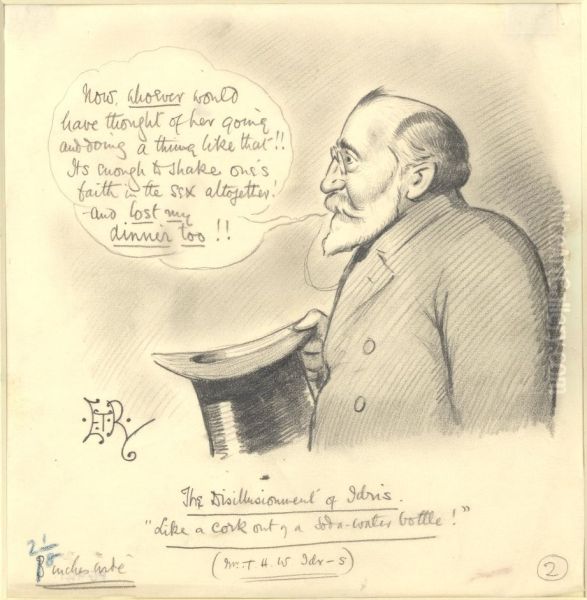 Now, whoever would
have thought of her going
and doing a thing like that!!
Its enough to shake one's
faith in the sex altogether!
and lost my
dinner too !!
ETR
The Disillusionment of Idris.
"Like a cork out of a soda-water bottle!"
(Mr. T H. W Idr-s)
inches wide
2